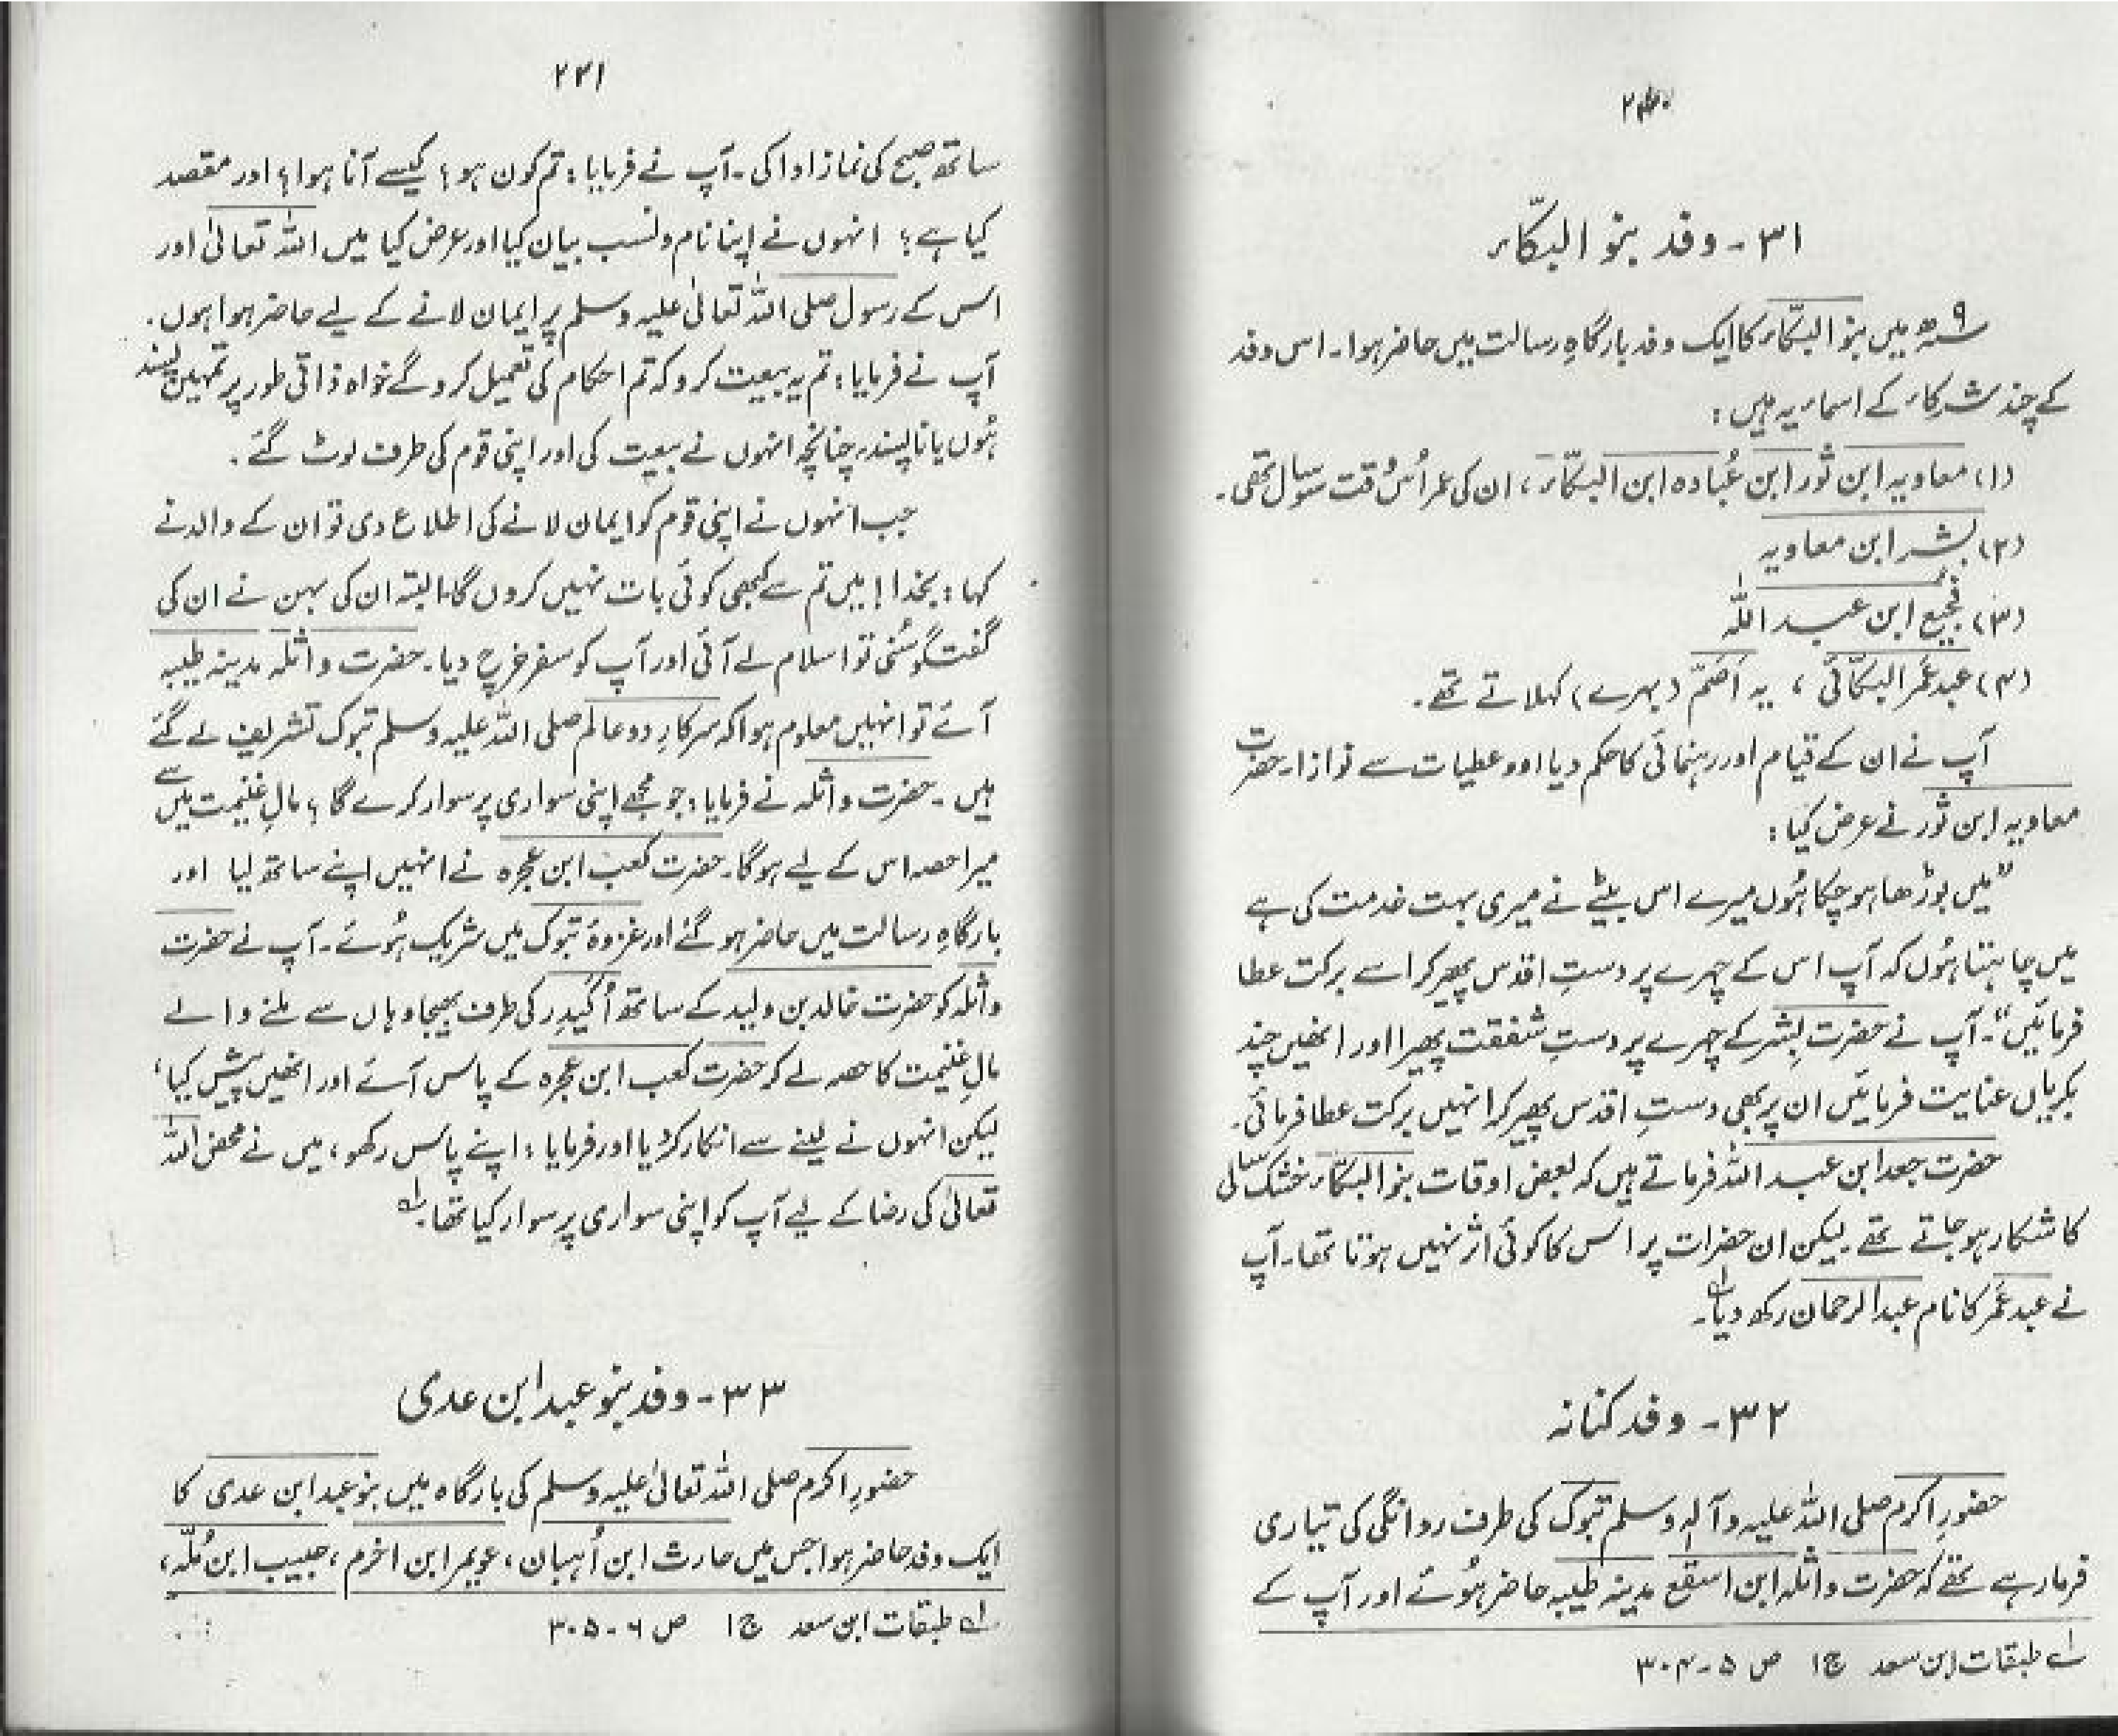 ۳۱ - وفد بنو البکّاء
۹ھ میں بنو البکّاء کا ایک وفد بارگاہِ رسالت میں حاضر ہوا۔ اس وفد
کے چند شرکاء کے اسماء یہ ہیں :
(۱) معاویہ ابن ثَور ابن عُبادہ ابن البکّاء ، ان کی عمر اُس وقت سو سال تھی۔
(۲) بشر ابن معاویہ
(۳) فجیع ابن عبد اللہ
(۴) عبد عَمر البکّائی ، یہ اَصَمّ (بہرے) کہلاتے تھے۔
آپ نے ان کے قیام اور رہنمائی کا حکم دیا اور عطیات سے نوازا۔ حضرت
معاویہ ابن ثَور نے عرض کیا :
”میں بوڑھا ہو چکا ہُوں میرے اس بیٹے نے میری بہت خدمت کی ہے
میں چاہتا ہُوں کہ آپ اس کے چہرے پر دستِ اقدس پھیر کر اسے برکت عطا
فرمائیں“۔ آپ نے حضرت بشر کے چہرے پر دستِ شفقت پھیرا اور انھیں چند
بکریاں عنایت فرمائیں ان پر بھی دستِ اقدس پھیر کر انہیں برکت عطا فرمائی۔
حضرت جعد ابن عبد اللہ فرماتے ہیں کہ بعض اوقات بنو البکّاء خشک سالی
کا شکار ہو جاتے تھے۔ لیکن ان حضرات پر اس کا کوئی اثر نہیں ہوتا تھا۔ آپ
نے عبد عَمر کا نام عبد الرحمان رکھ دیا۔ لہ
۳۲ - وفد کنانہ
حضورِ اکرم صلی اللہ علیہ و آلہٖ وسلم تبوک کی طرف روانگی کی تیاری
فرما رہے تھے کہ حضرت واثلہ ابن اسقع مدینہ طیبہ حاضر ہُوئے اور آپ کے
لہ طبقات ابن سعد ج ۱ ص ۵-۳۰۴
۲۴۱
ساتھ صبح کی نماز ادا کی۔ آپ نے فرمایا : تم کون ہو؟ کیسے آنا ہوا؟ اور مقصد
کیا ہے؟ انہوں نے اپنا نام و نسب بیان کیا اور عرض کیا میں اللہ تعالیٰ اور
اس کے رسول صلی اللہ تعالیٰ علیہ وسلم پر ایمان لانے کے لیے حاضر ہوا ہوں۔
آپ نے فرمایا : تم یہ بیعت کرو کہ تم احکام کی تعمیل کرو گے خواہ ذاتی طور پر تمہیں پسند
ہُوں یا ناپسند۔ چنانچہ انہوں نے بیعت کی اور اپنی قوم کی طرف لوٹ گئے۔
جب انہوں نے اپنی قوم کو ایمان لانے کی اطلاع دی تو ان کے والد نے
کہا : بخدا! میں تم سے کبھی کوئی بات نہیں کروں گا، البتہ ان کی بہن نے ان کی
گفتگو سُنی تو اسلام لے آئی اور آپ کو سفر خرچ دیا۔ حضرت واثلہ مدینہ طیبہ
آئے تو انہیں معلوم ہوا کہ سرکارِ دو عالم صلی اللہ علیہ وسلم تبوک تشریف لے گئے
ہیں۔ حضرت واثلہ نے فرمایا : جو مجھے اپنی سواری پر سوار کرے گا ؟ مالِ غنیمت میں سے
میرا حصہ اس کے لیے ہوگا۔ حضرت کعب ابن عجرہ نے انہیں اپنے ساتھ لیا اور
بارگاہِ رسالت میں حاضر ہو گئے اور غزوۂ تبوک میں شریک ہُوئے۔ آپ نے حضرت
واثلہ کو حضرت خالد بن ولید کے ساتھ اُکَیدِر کی طرف بھیجا وہاں سے ملنے والے
مالِ غنیمت کا حصہ لے کر حضرت کعب ابن عجرہ کے پاس آئے اور انھیں پیش کیا،
لیکن انہوں نے لینے سے انکار کر دیا اور فرمایا : اپنے پاس رکھو، میں نے محض اللہ
تعالیٰ کی رضا کے لیے آپ کو اپنی سواری پر سوار کیا تھا۔ لہ
۳۳ - وفد بنو عبد ابن عدی
حضورِ اکرم صلی اللہ تعالیٰ علیہ وسلم کی بارگاہ میں بنو عبد ابن عدی کا
ایک وفد حاضر ہوا جس میں حارث ابن اُہبان، عویمر ابن اخرم، حبیب ابن مُلّہ،
لہ طبقات ابن سعد ج ۱ ص ۶-۳۰۵